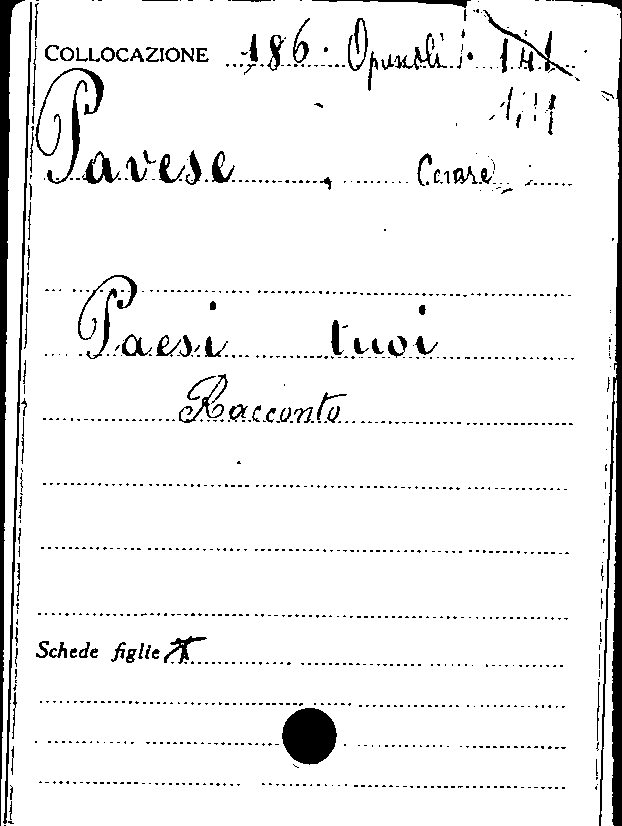 COLLOCAZIONE 186. Opuscoli 141
Pavese, Cesare
Paesi tuoi
Racconto
Schede figlie